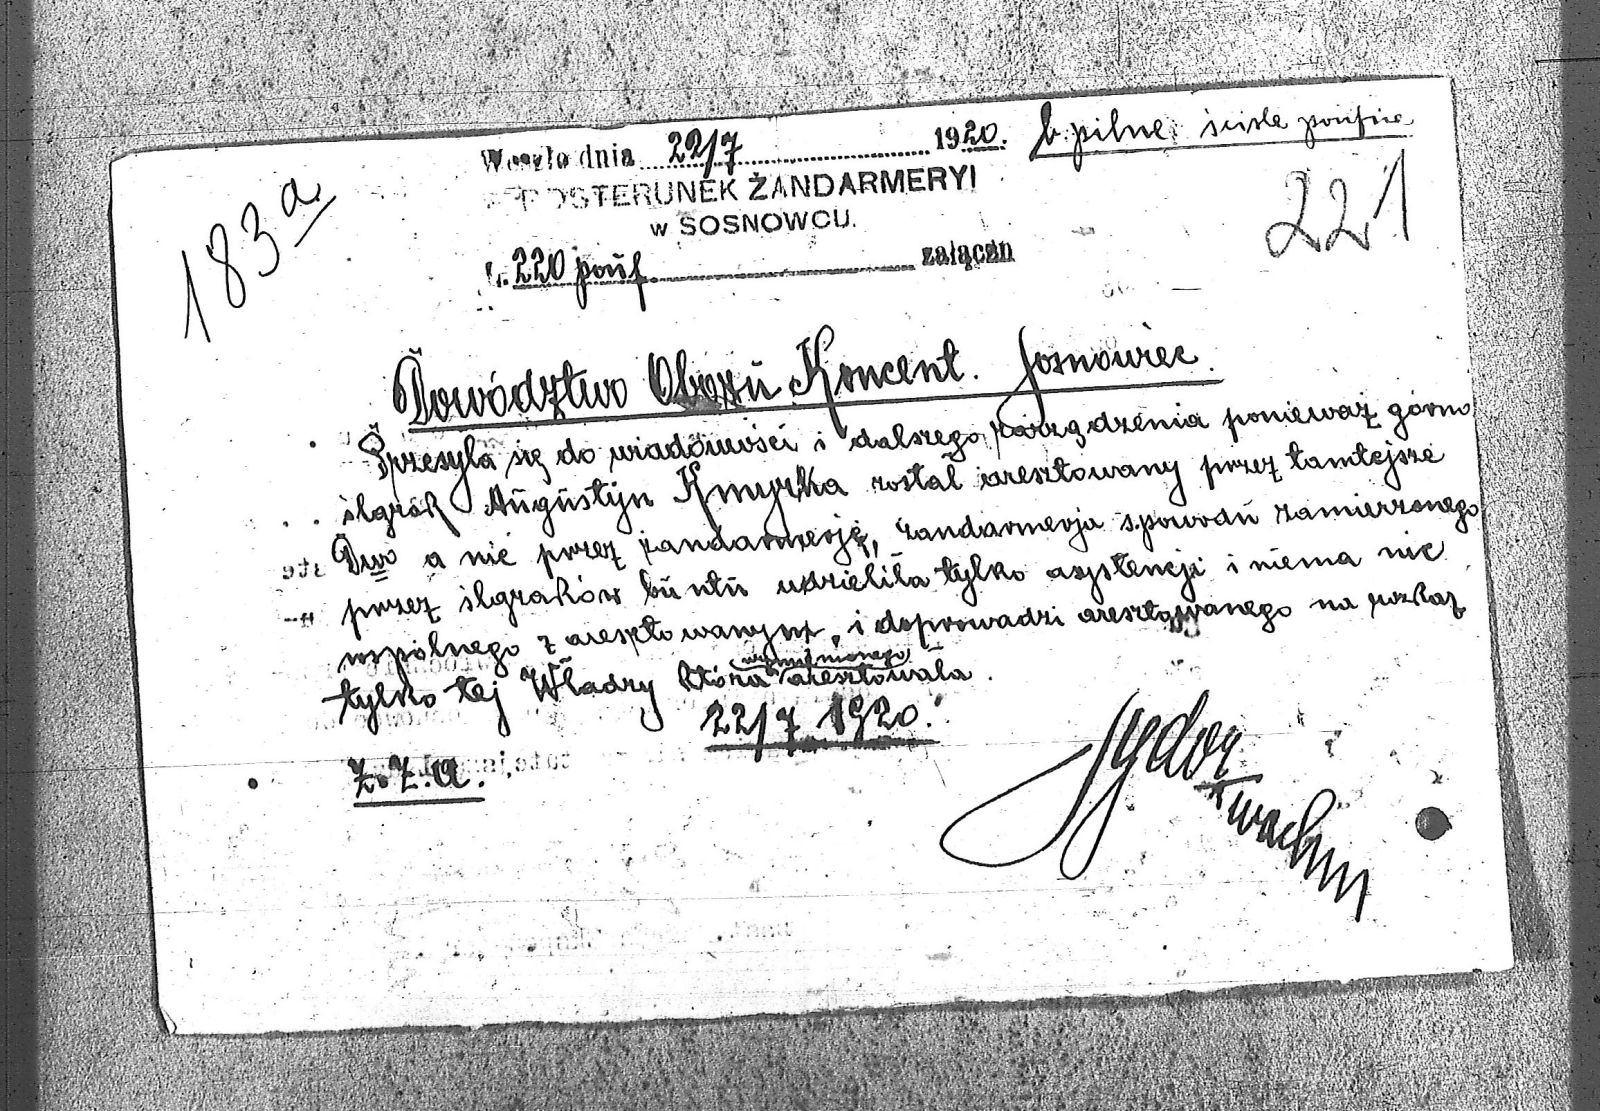 Weszło dnia 22/7 1920. b. pilne ściśle poufne
183a
POSTERUNEK ŻANDARMERYI
w SOSNOWCU.
221
L. 220 pouf. załączn
Dowództwo Obozu Koncent. Sosnowiec.
Przesyla się do wiadomości i dalszego zarządzenia ponieważ górno
ślązak Augustyn Kmyrka został aresztowany przez tamtejsze
Dwo a nie przez żandarmerję, żandarmerja spowodu zamierzonego
przez ślązaków buntu udzieliła tylko asystencji i niema nic
wspólnego z aresztowanym, i doprowadzi aresztowanego na rozkaz
tylko tej Władzy która wymienionego aresztowała.
22/7 1920.
Z. Z. a.